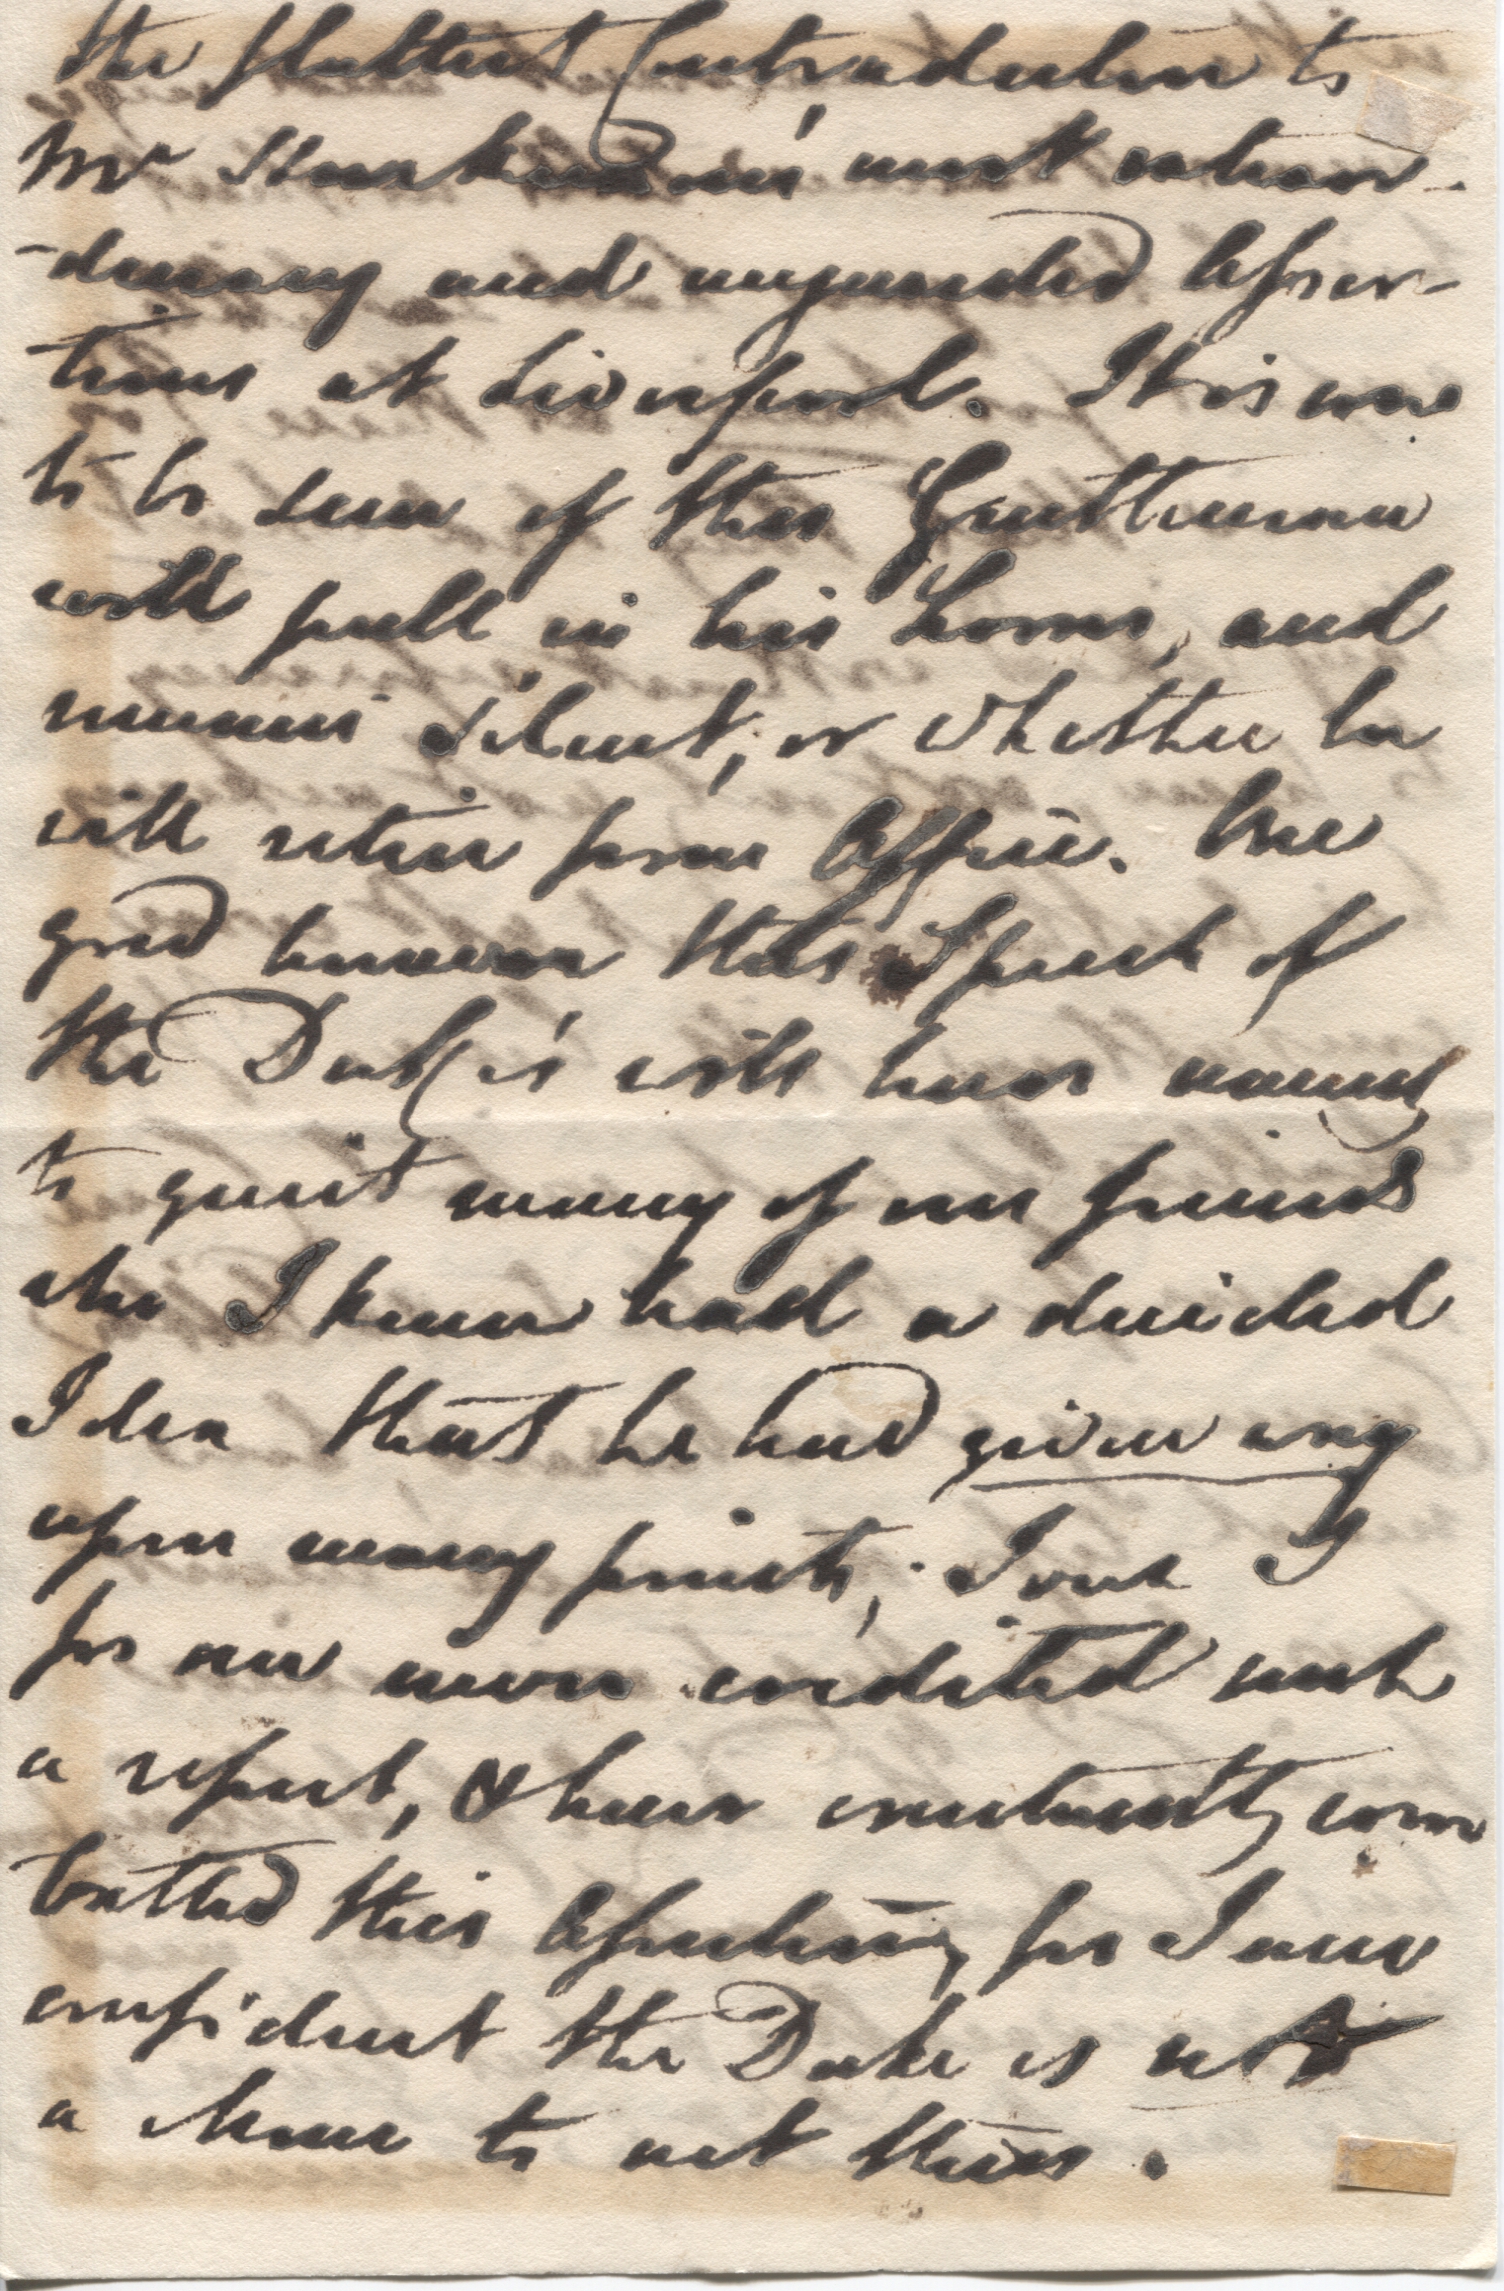 the flattest Contradiction to
Mr Huskisson's most extraor-
-dinary and ungrounded Asser-
tions at Liverpool. It is now
to be seen if this Gentleman
will pull in his Horns, and
remain silent; or whether he
will retire from Office. One
good however this Speech of
the Duke's will have namely
to quiet many of our friends
who I know had a decided
Idea that he had given way
upon many points; Such I
for one never credited such
a report, & have constantly com
batted this Assertion, for I am
confident the Duke is not
a Man to act thus.